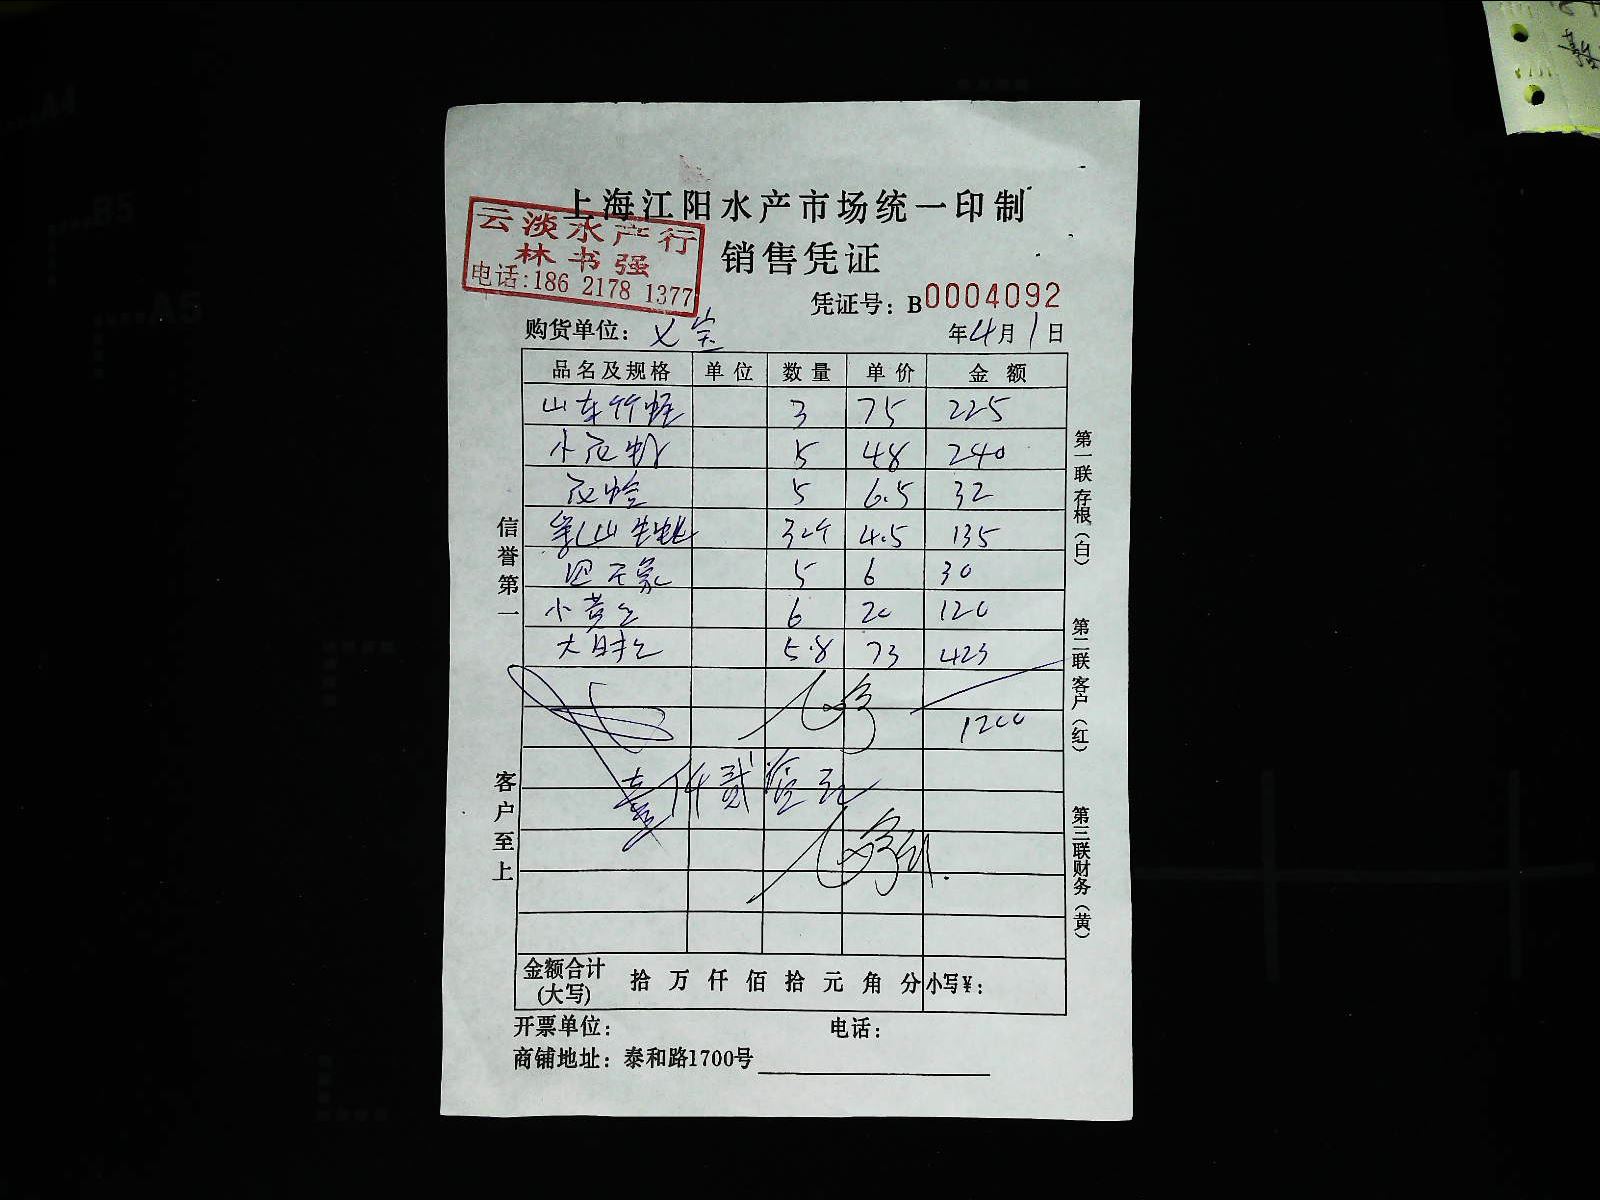 上海江阳水产市场统一印制
云淡水产行
林书强
电话:186 2178 1377
销售凭证
凭证号: B0004092
购货单位:
年4月1日
品名及规格 单位 数量 单价 金额
山东竹蛏 3 75 225
小花 5 48 240
花蛤 5 6.5 32
乳山生蚝 4.5 135
5 6 30
小黄 6 20 120
大 5.8 73 423
1200
仟贰
第一联存根(白)
第二联客户(红)
第三联财务(黄)
信誉第一
客户至上
金额合计(大写) 拾 万 仟 佰 拾 元 角 分 小写¥:
开票单位: 电话:
商铺地址: 泰和路1700号